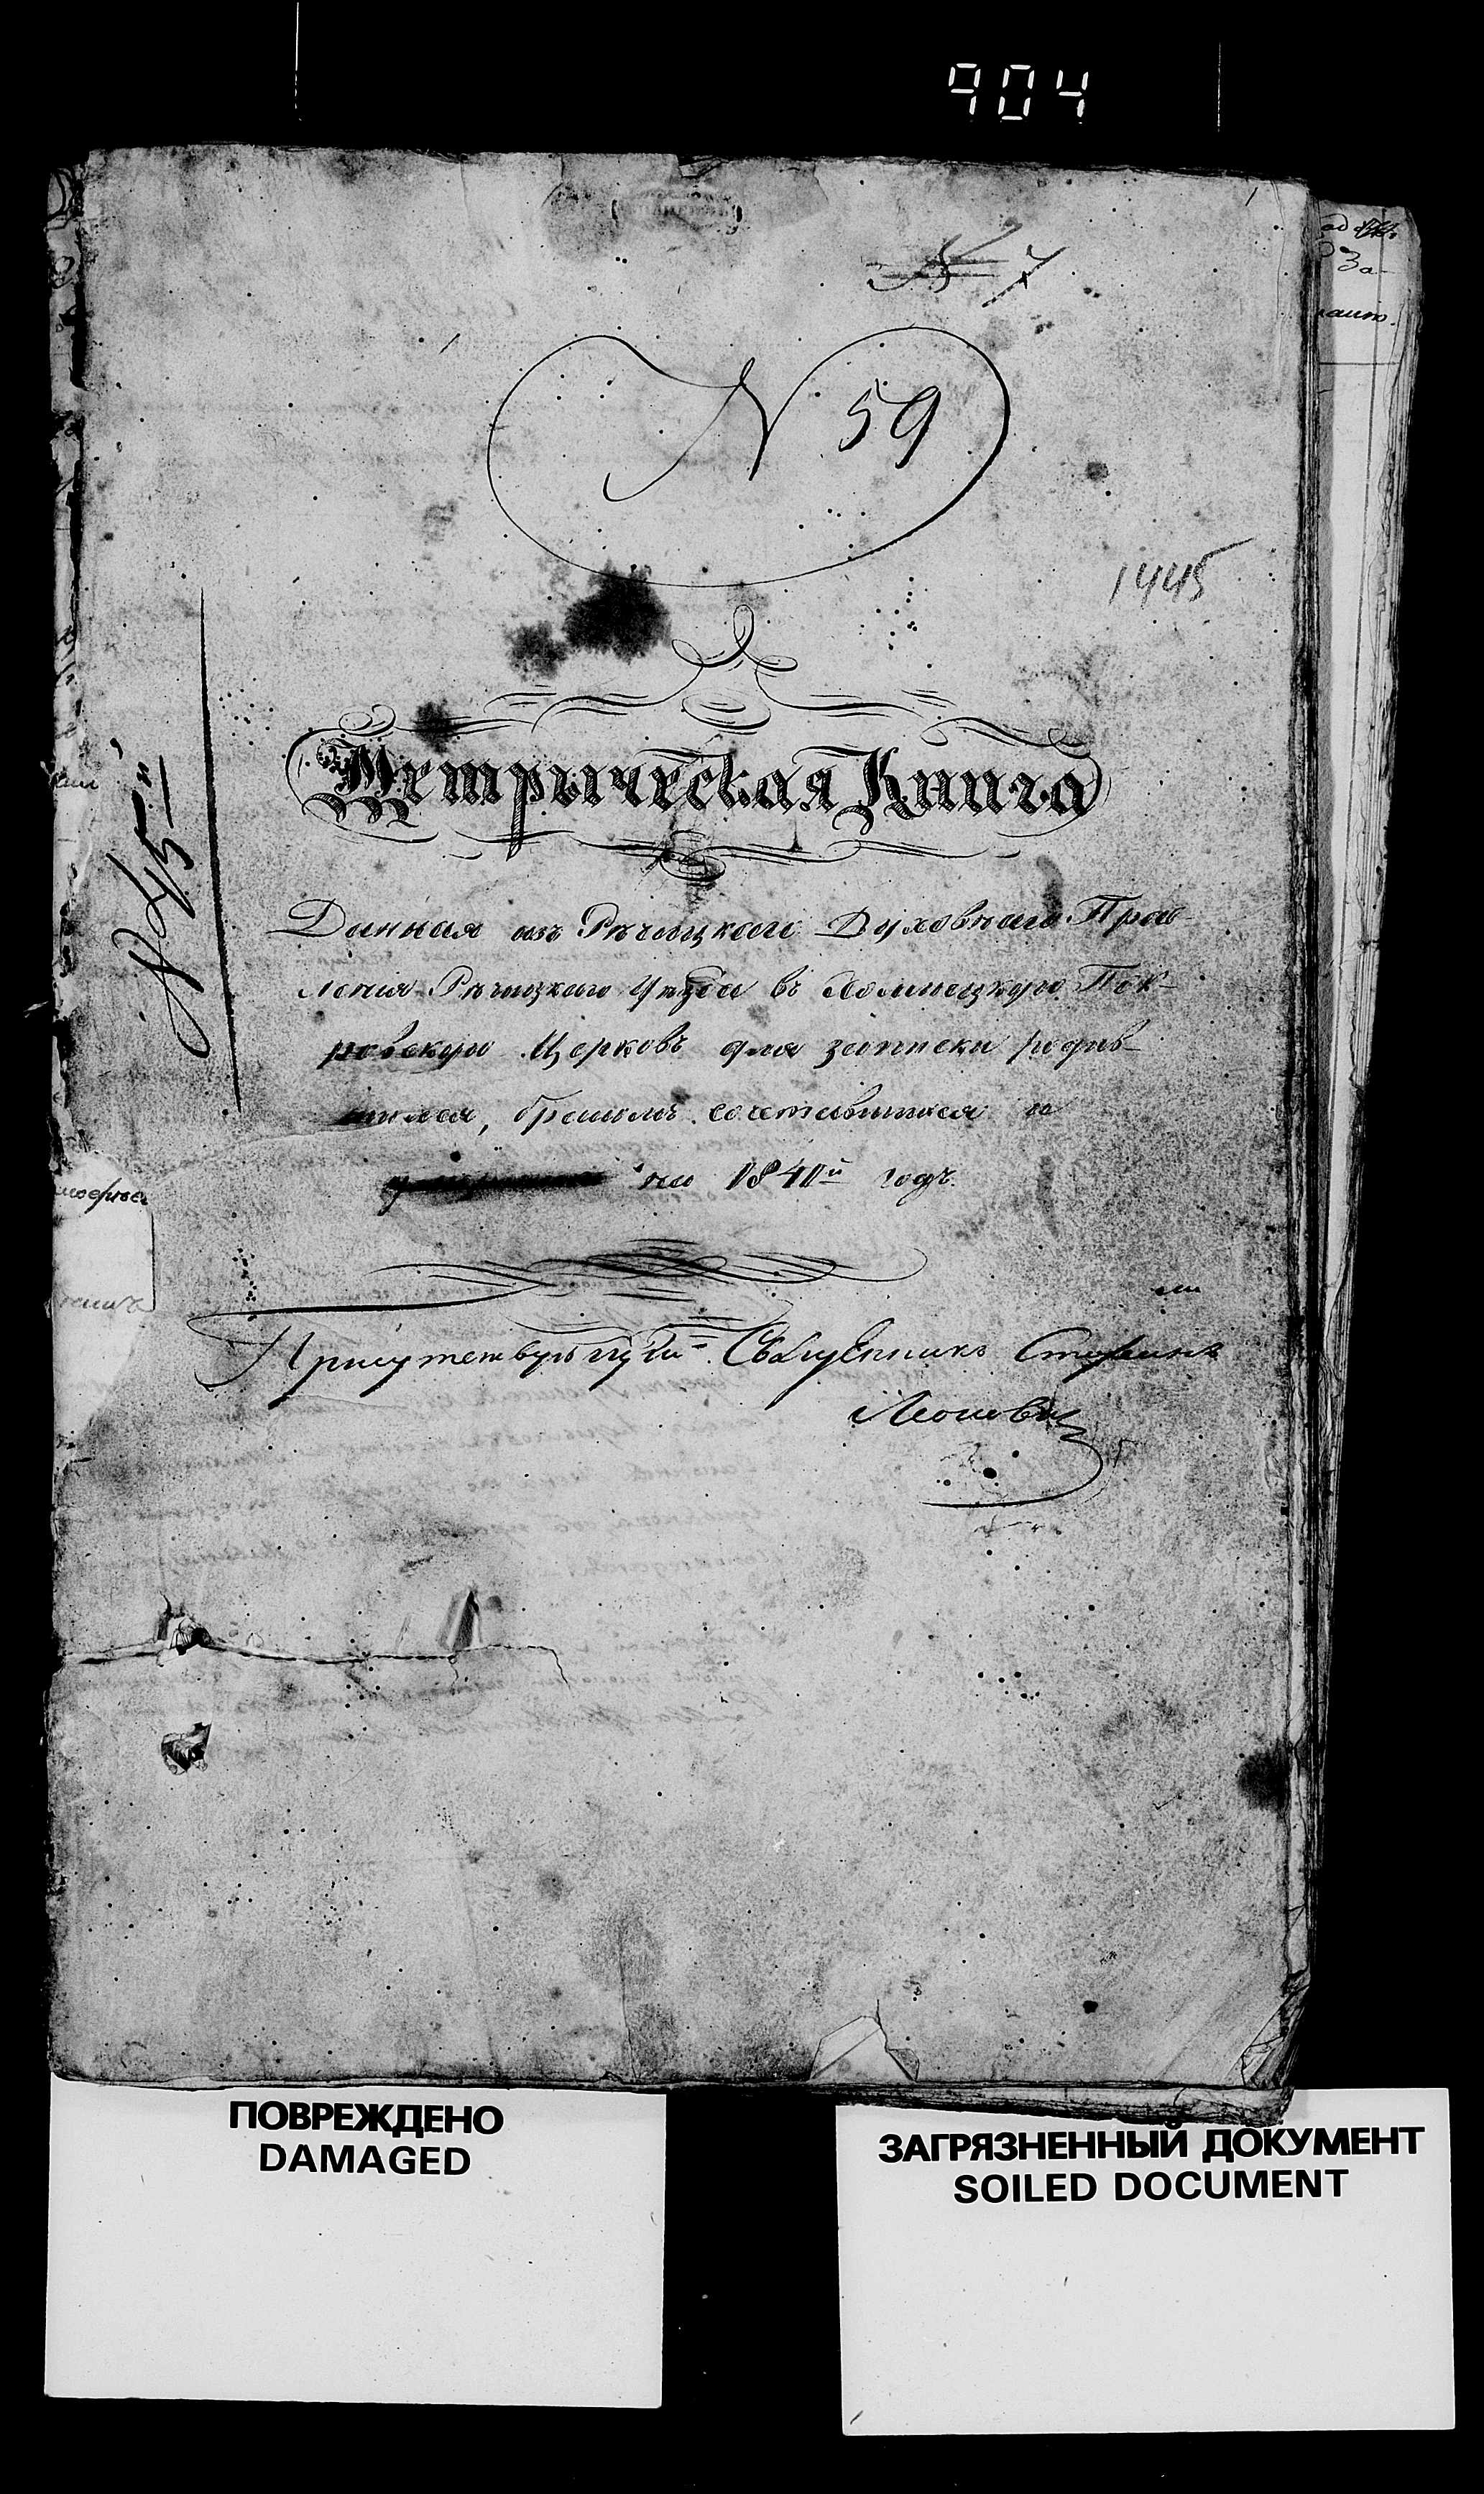 904
1
№ 7
N 59
1445
№ 45"
Метрическая Книга
Данная изъ Рѣчицкаго Духовнаго Прав-
ленія Рѣчицкаго Уѣзда въ Холмецкую Пок-
ровскую Церковь для записки родив-
шихся, бракомъ сочетавшихся и
на 1841й годъ.
Присутствующій Священникъ Стефанъ
ПОВРЕЖДЕНО
DAMAGED
ЗАГРЯЗНЕННЫЙ ДОКУМЕНТ
SOILED DOCUMENT